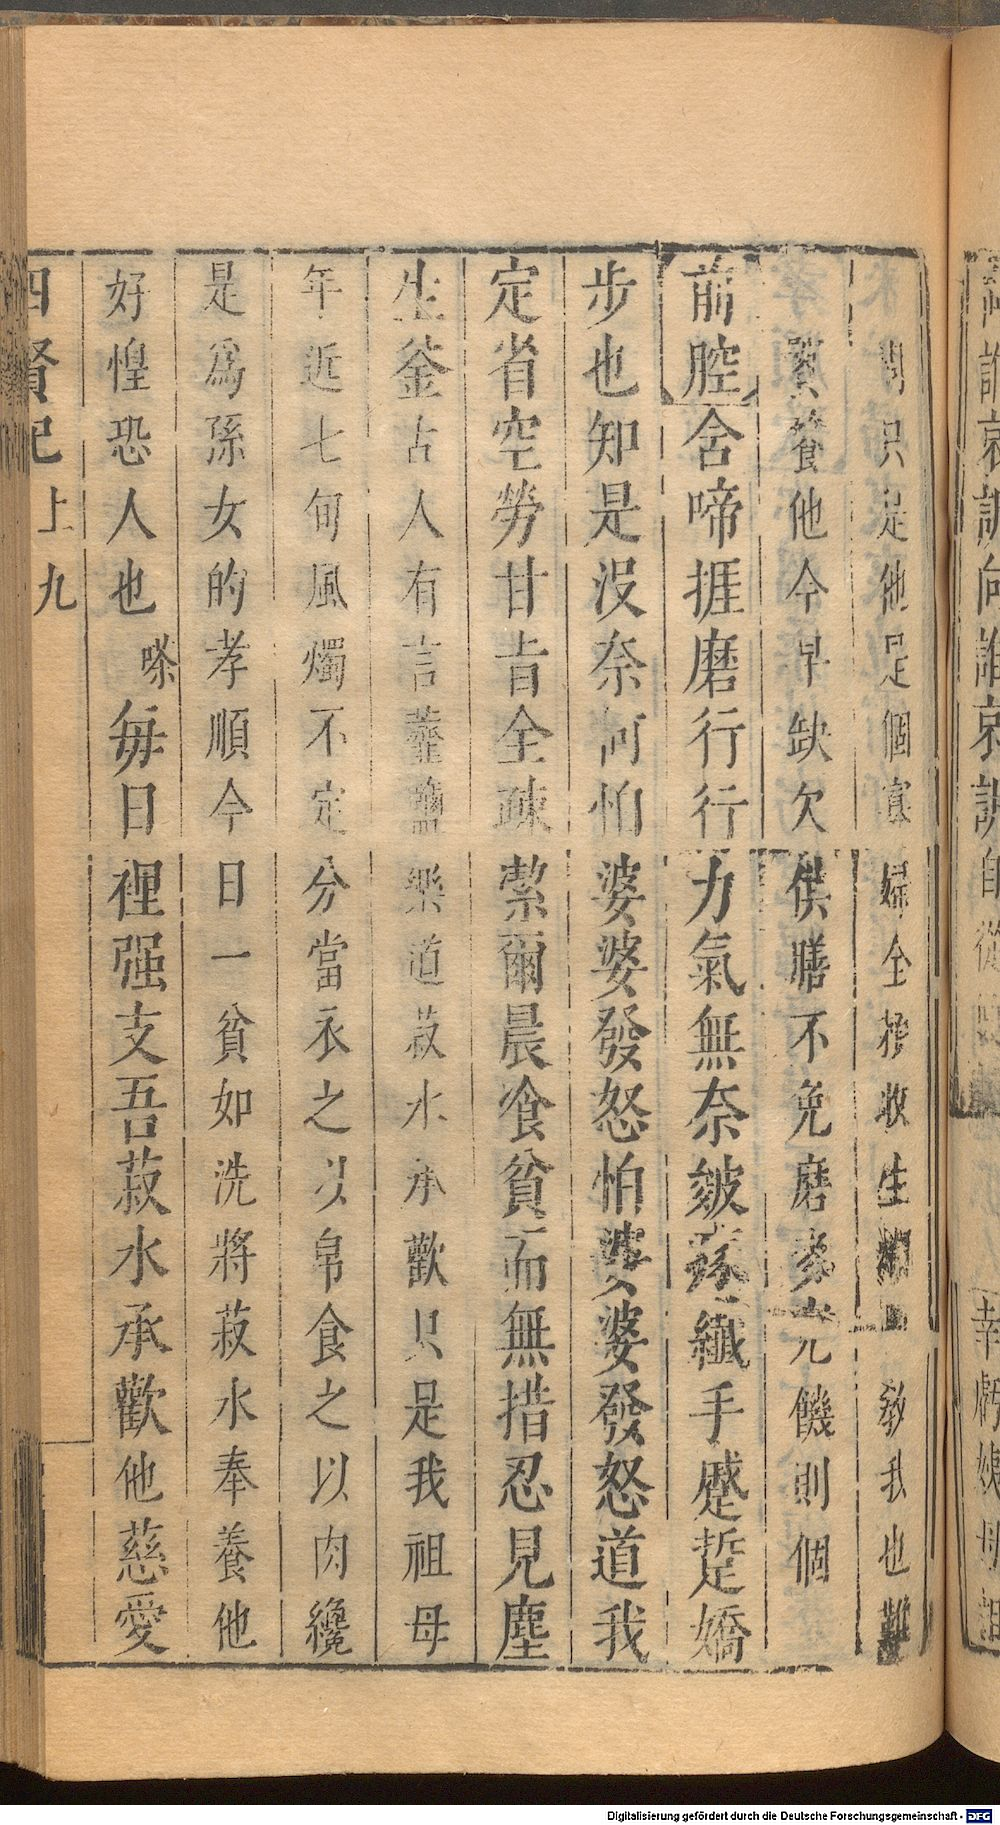 問只是他是個寡婦全稜收生 敎我也難
贅養他今早缺欠供膳不免磨麥 充饑則個
前腔舍啼捱磨行行力氣無奈皴 纎手蹙踅嬌
步也知是没奈何怕婆婆發怒怕婆婆發怒道我
定省空勞甘旨全疎縈爾晨飡貧而無措忍見塵
生釜古人有言虀鹽樂道菽水承歡只是我祖母
年近七旬風燭不定分當衣之以帛食之以肉纔
是爲孫女的孝順今日一貧如洗將菽水奉養他
好惶恐人也嗏每日裡强支吾菽水承歡他慈愛
四賢記 上 九
Digitalisierung gefördert durch die Deutsche Forschungsgemeinschaft - DFG